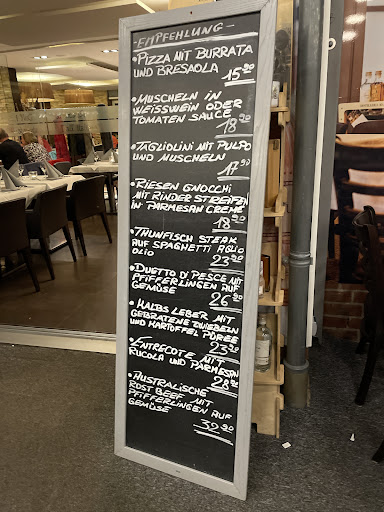 -EMPFEHLUNG-
•PIZZA MIT BURRATA
UND BRESAOLA
15.90
•MUSCHELN IN
WEISSWEIN ODER
TOMATEN SAUCE
18.90
•TAGLIOLINI MIT PULPO
UND MUSCHELN
17.90
•RIESEN GNOCCHI
MIT RINDER STREIFEN
IN PARMESAN CREME
18.90
•THUNFISCH STEAK
AUF SPAGHETTI AGLIO
OLIO
23.90
•DUETTO DI PESCE MIT
PFIFFERLINGEN AUF
GEMÜSE
26.90
•KALBS LEBER MIT
GEBRATENE ZWIEBELN
UND KARTOFFEL PÜREE
23.90
•ENTRECOTE MIT
RUCOLA UND PARMESAN
28.90
•AUSTRALISCHE
ROST BEEF MIT
PFIFFERLINGEN AUF
GEMÜSE
32.90